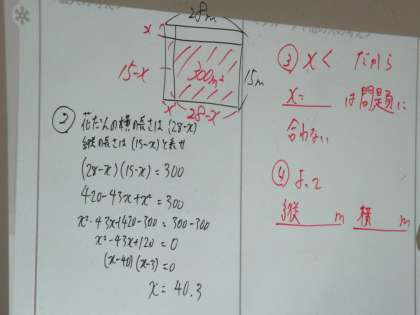 28m
x
15-x
300m²
15m
x 28-x
② 花だんの横の長さは(28-x)
縦の長さは(15-x)と表せ
(28-x)(15-x)=300
420-43x+x²=300
x²-43x+420-300=300-300
x²-43x+120=0
(x-40)(x-3)=0
x=40.3
③ x< だから
x=____は問題に
合わない
④ よって
縦____m 横____m